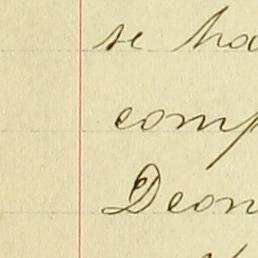 se ha
comp
Deon